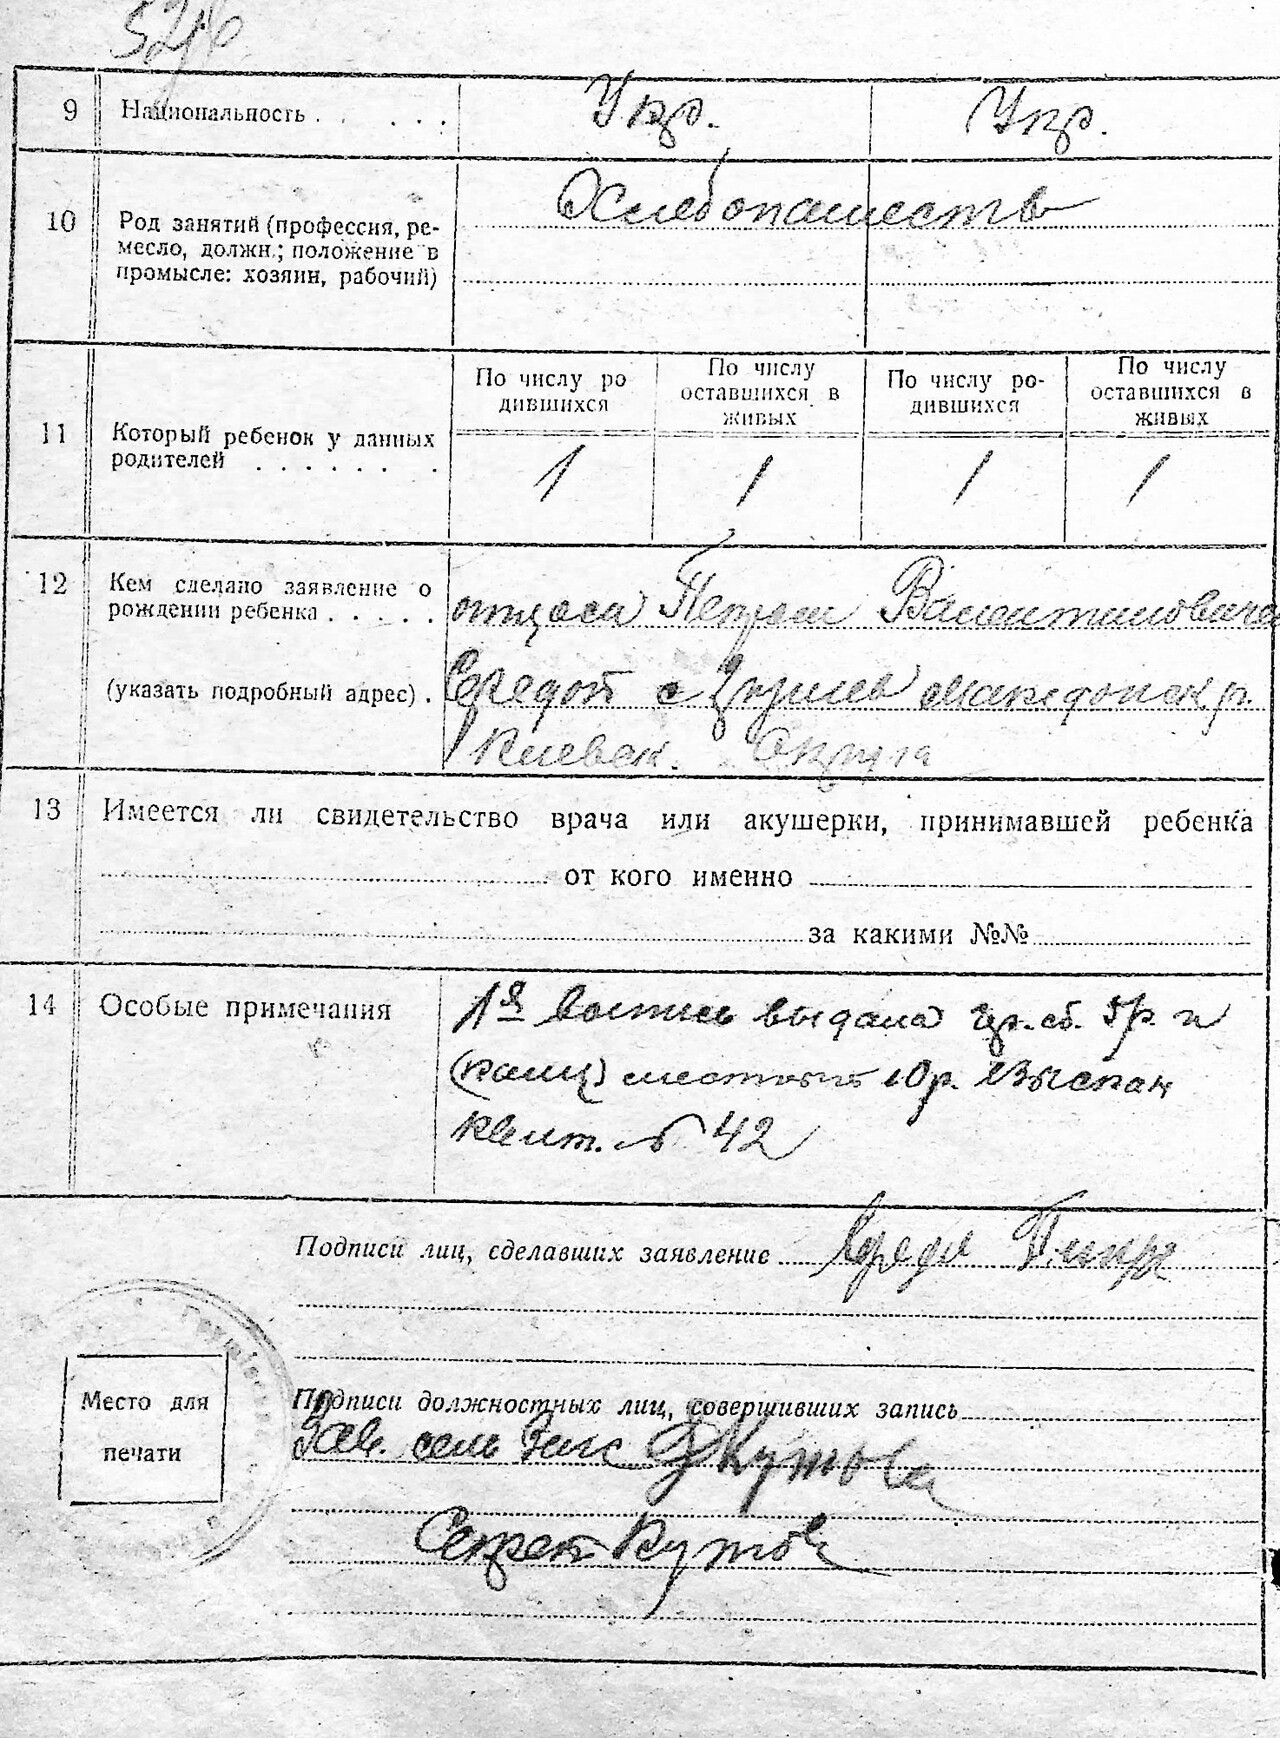 526
9 Национальность . . . . . . Укр. Укр.
10 Род занятий (профессия, ре-
месло, должн.; положение в
промысле: хозяин, рабочий)
Хлебопашеств
11 Который ребенок у данных
родителей . . . . . . . .
По числу ро
дившихся
По числу
оставшихся в
живых
По числу ро-
дившихся
По числу
оставшихся в
живых
1 1 1 1
12 Кем сделано заявление о
рождении ребенка . . . . .
(указать подробный адрес) .
отцом Петром Валентиновичем
с Македонск р.
Киевск. Округа
13 Имеется ли свидетельство врача или акушерки, принимавшей ребенка
от кого именно
за какими №№
14 Особые примечания
1я выпись выдана гр. сб. 5 р. и
(канц) местный 10 р. взыскан
квит. № 42
Подписи лиц, сделавших заявление
Место для
печати
Подписи должностных лиц, совершивших запись
Зав. сель Загс Кутова
Секрет Кутов